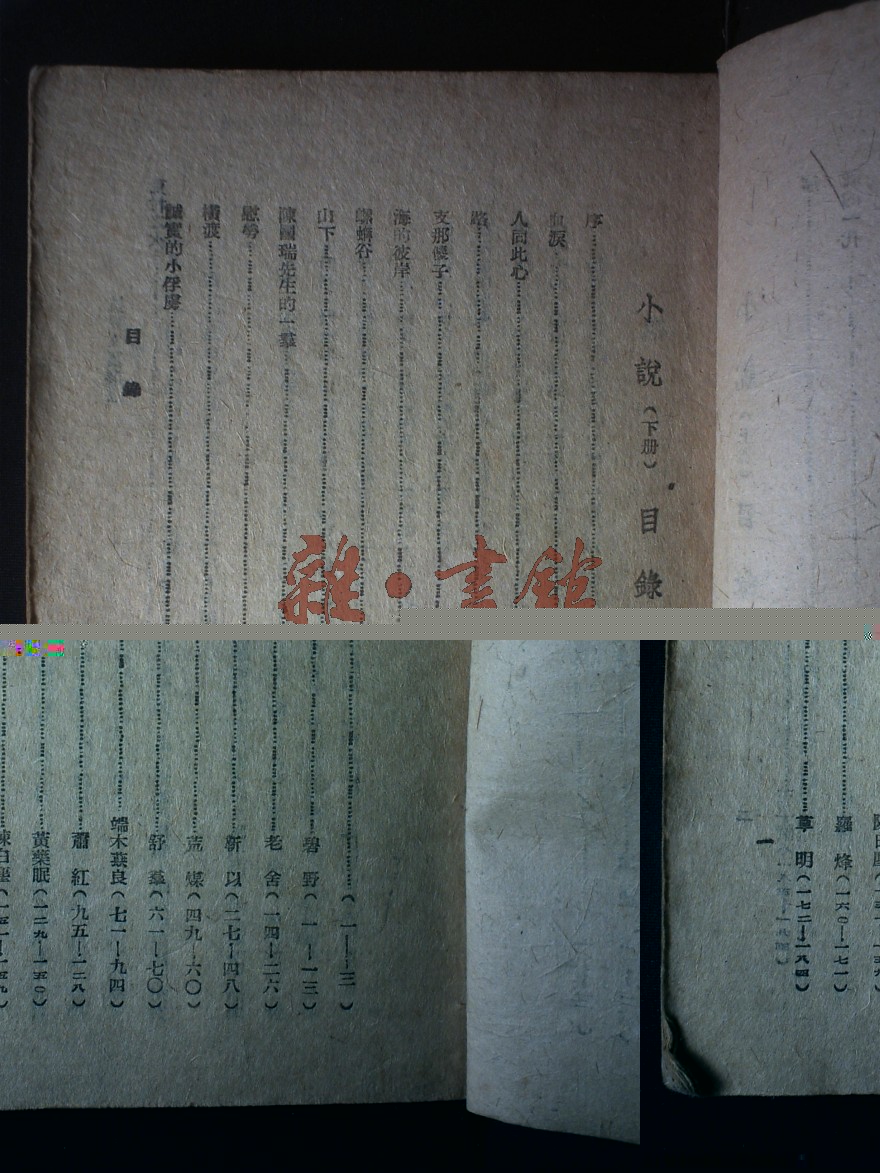 小說（下册）目錄
序
血淚
人同此心
路
支那傻子
海的彼岸
螺螄谷
山下
陳國瑞先生的一羣
慰勞
橫渡
誠實的小俘虜
目錄
雜·書館
（一—三）
碧野（一—一三）
老舍（一四—二六）
靳以（二七—四八）
荒煤（四九—六〇）
舒羣（六一—七〇）
端木蕻良（七一—九四）
蕭紅（九五—一二八）
黃藥眠（一二九—一五〇）
陳白塵（一五一—一五九）
羅烽（一六〇—一七一）
草明（一七二—一八四）
一